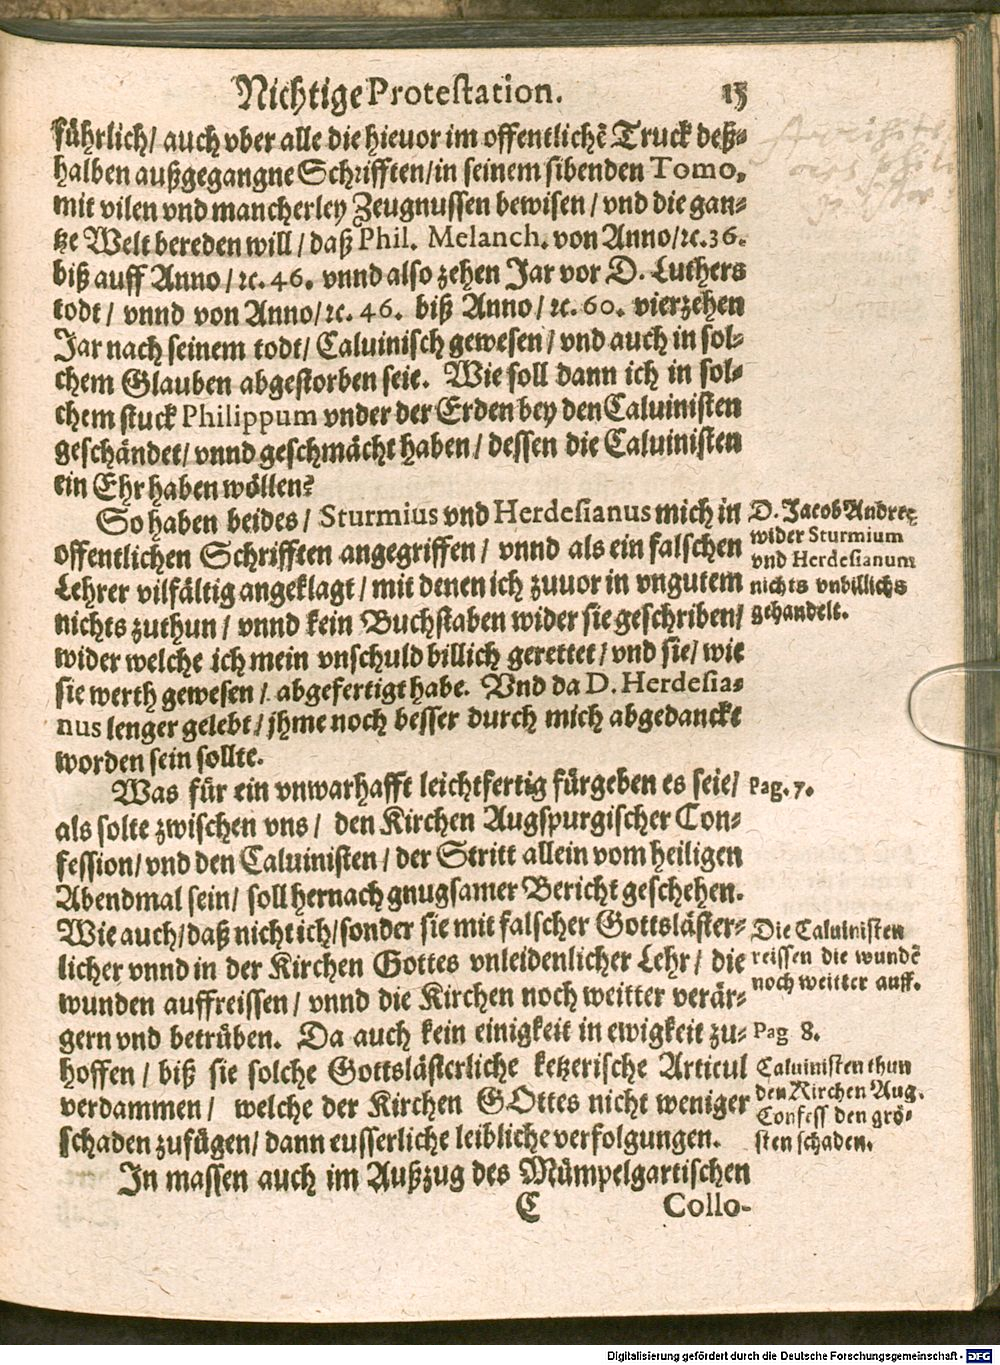 Nichtige Protestation. 15
führlich/ auch vber alle die hieuor im offentlichē Truck deß-
halben außgegangne Schrifften/in seinem sibenden Tomo,
mit vilen vnd mancherley Zeugnussen bewisen / vnd die gan-
tze Welt bereden will / daß Phil. Melanch. von Anno/ꝛc. 36.
biß auff Anno / ꝛc. 46. vnnd also zehen Jar vor D. Luthers
todt / vnnd von Anno/ꝛc. 46. biß Anno / ꝛc. 60. vierzehen
Jar nach seinem todt/ Caluinisch gewesen / vnd auch in sol-
chem Glauben abgestorben seie. Wie soll dann ich in sol-
chem stuck Philippum vnder der Erden bey den Caluinisten
geschändet/ vnnd geschmächt haben / dessen die Caluinisten
ein Ehr haben wöllen?
So haben beides / Sturmius vnd Herdesianus mich in
offentlichen Schrifften angegriffen / vnnd als ein falschen
Lehrer vilfältig angeklagt / mit denen ich zuuor in vngutem
nichts zuthun / vnnd kein Buchstaben wider sie geschriben/
wider welche ich mein vnschuld billich gerettet / vnd sie/ wie
sie werth gewesen / abgefertigt habe. Vnd da D. Herdesia-
nus lenger gelebt / jhme noch besser durch mich abgedanckt
worden sein sollte.
D. Jacob Andreę
wider Sturmium
vnd Herdesianum
nichts vnbillichs
gehandelt.
Was für ein vnwarhafft leichtfertig fürgeben es seie/
Pag. 7.
als solte zwischen vns / den Kirchen Augspurgischer Con-
fession/ vnd den Caluinisten / der Stritt allein vom heiligen
Abendmal sein/ soll hernach gnugsamer Bericht geschehen.
Wie auch/daß nicht ich/sonder sie mit falscher Gottsläster-
licher vnnd in der Kirchen Gottes vnleidenlicher Lehr / die
wunden auffreissen / vnnd die Kirchen noch weitter verär-
gern vnd betrüben. Da auch kein einigkeit in ewigkeit zu-
hoffen / biß sie solche Gottslästerliche ketzerische Articul
verdammen / welche der Kirchen GOttes nicht weniger
schaden zufügen/ dann eusserliche leibliche verfolgungen.
Die Caluinisten
reissen die wundē
noch weitter auff.
Pag 8.
Caluinisten thun
den Kirchen Aug.
Confess den grö-
sten schaden.
In massen auch im Außzug des Mümpelgartischen
C Collo-
Digitalisierung gefördert durch die Deutsche Forschungsgemeinschaft - DFG